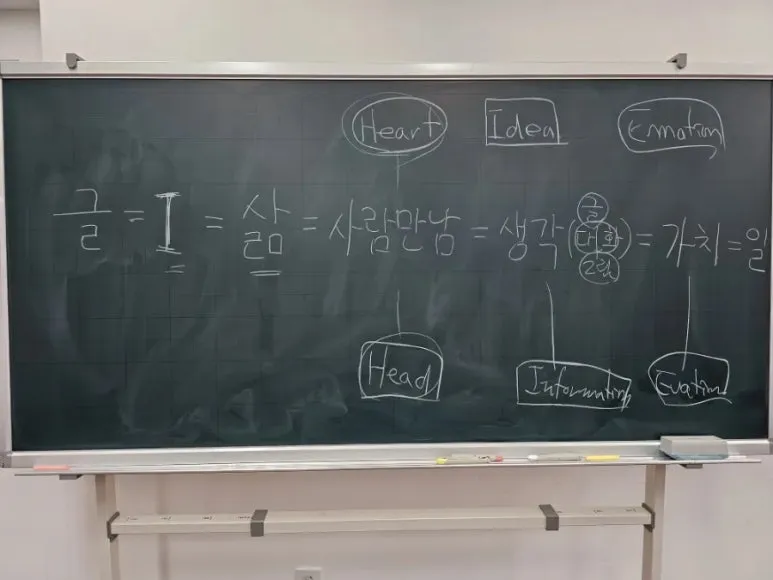 Heart Idea Emotion
글 = I = 삶 = 사람만남 = 생각 (글 대화 = 가치 = 일
Head Information